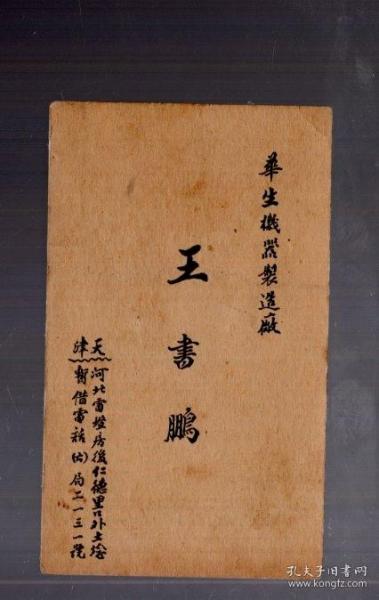 華生機器製造廠
王書鵬
天津
河北電燈房後仁德里口外土墻
暫借電話(六)局二一三一號
孔夫子旧书网
www.kongfz.com